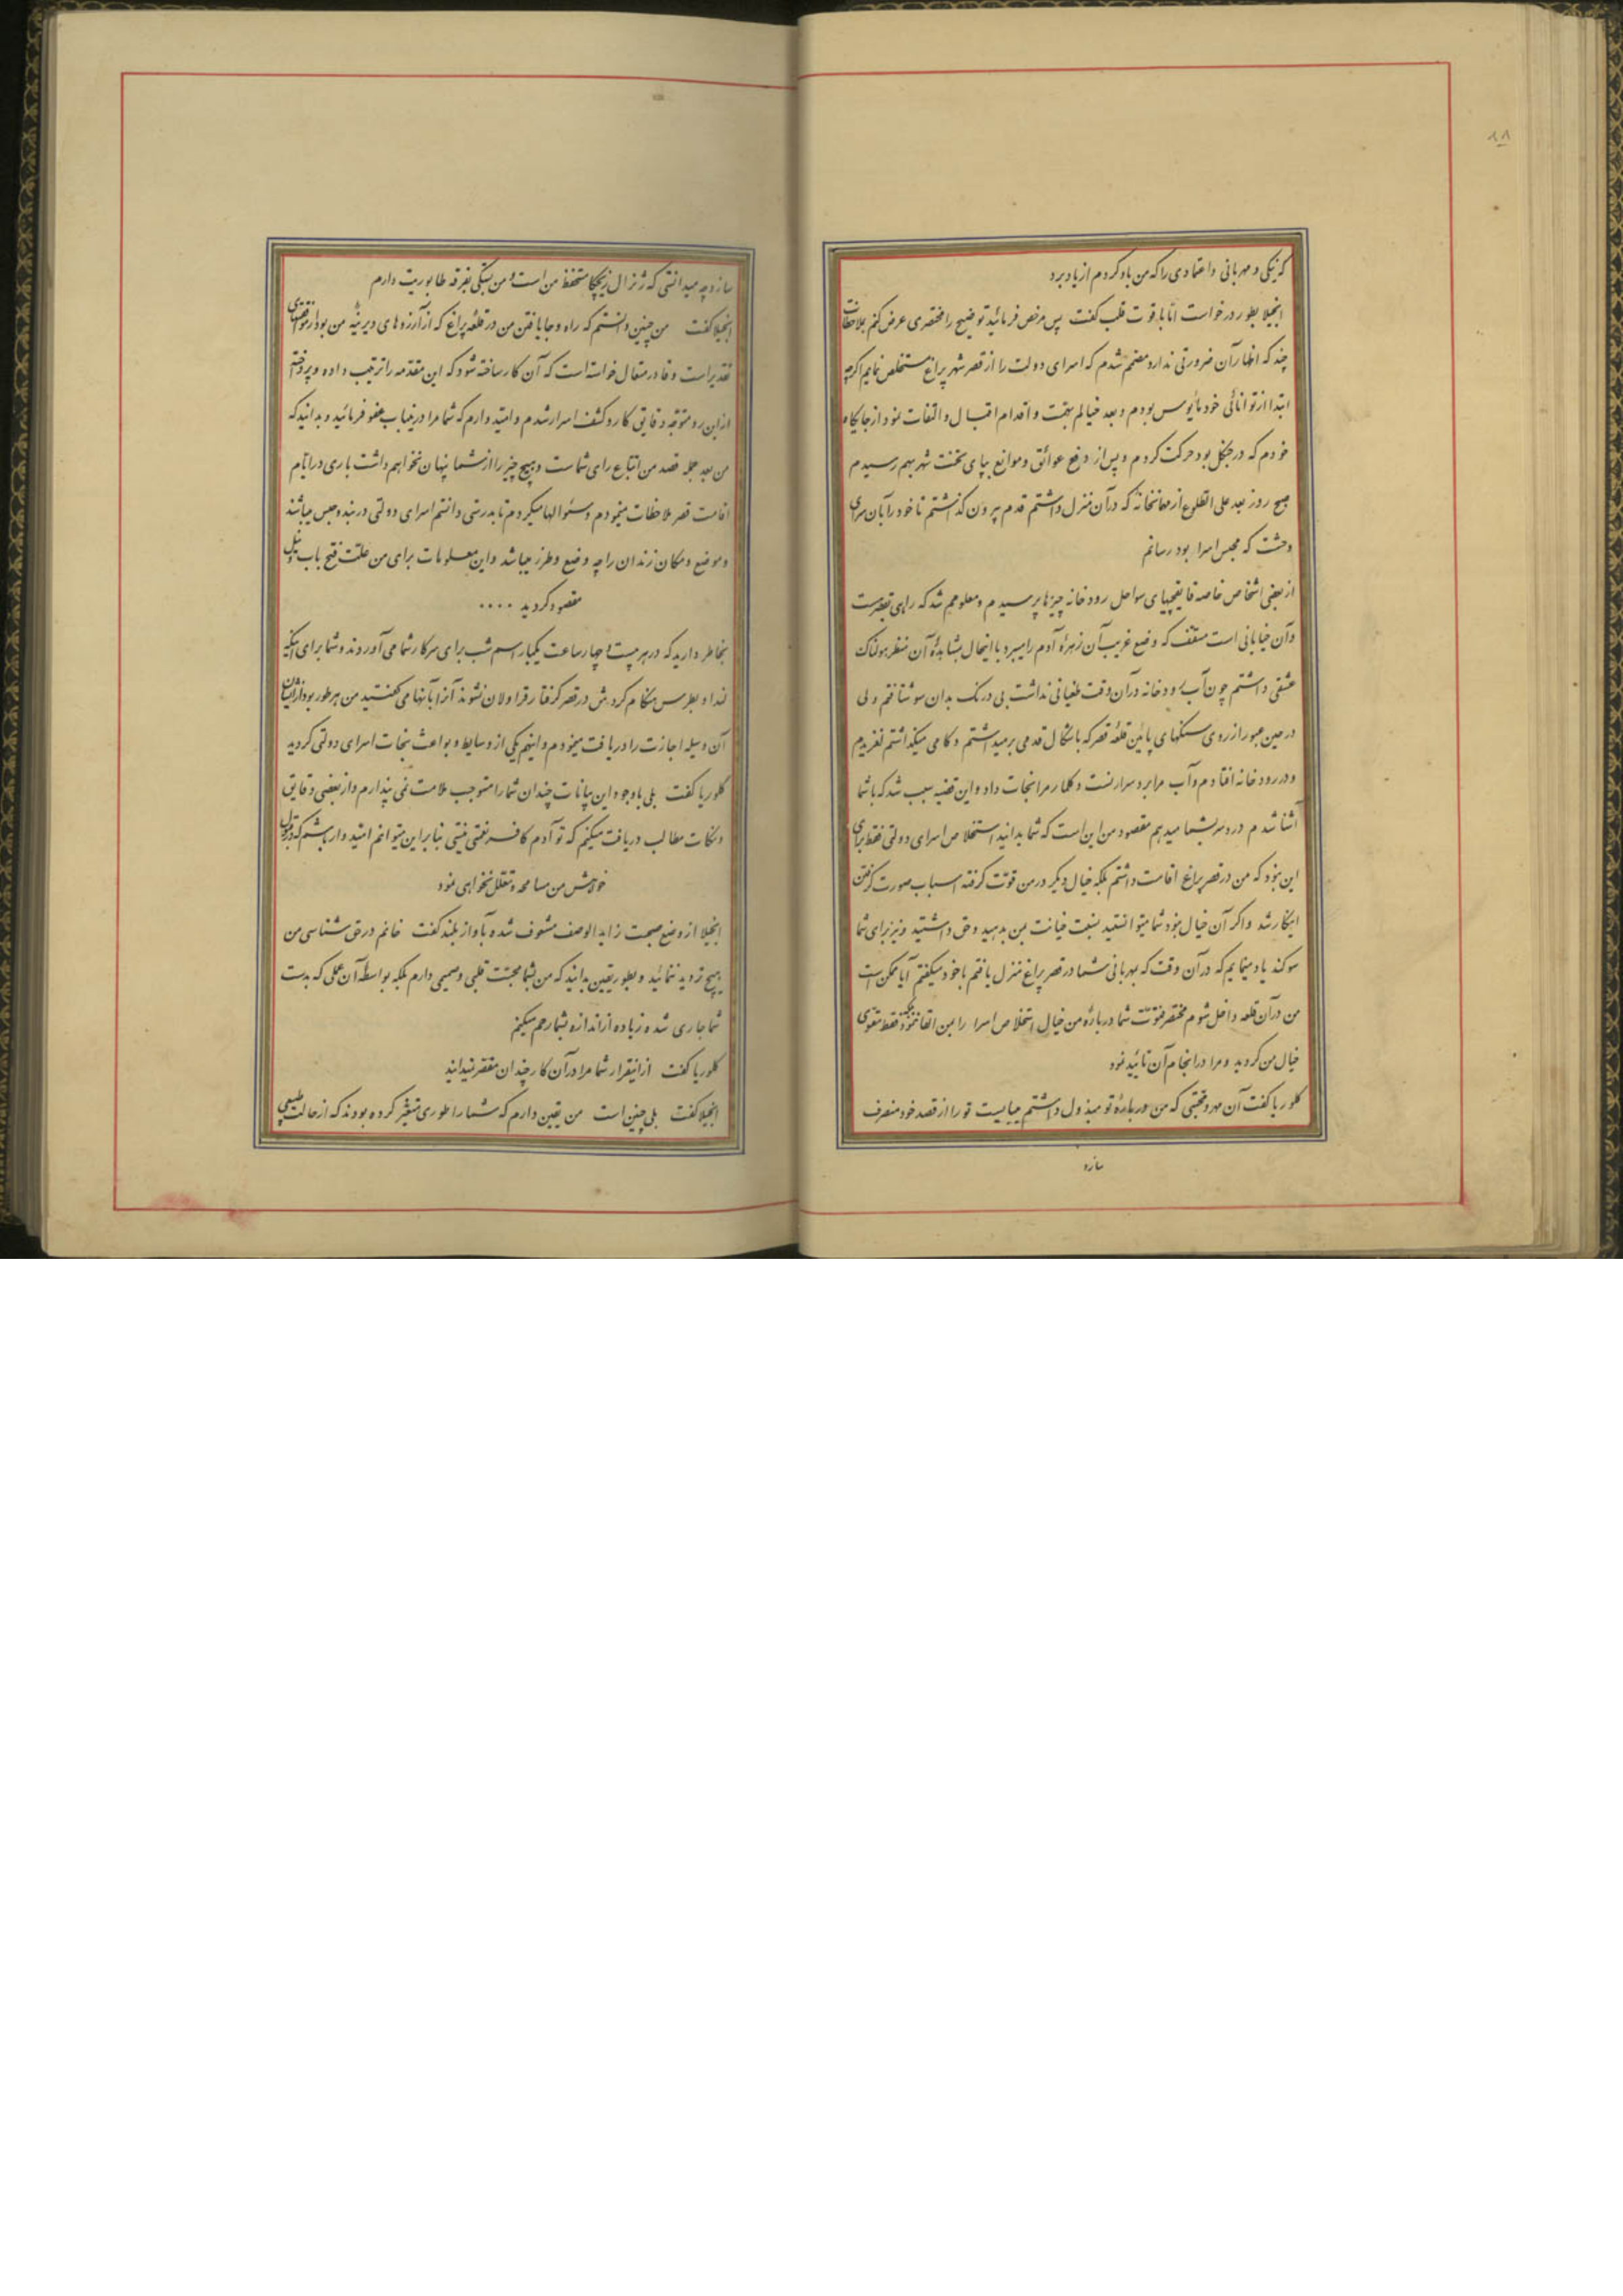 ۸۱
که نیکی و مهربانی و اعتمادی را که من باو کردم از یاد برد
انجیلا بطور درخواست اما با قوت قلب گفت پس مرخص فرمائید توضیح را مختصری عرض کنم بملاحظات
چند که اظهار آن ضرورتی ندارد مصمم شدم که اسرای دولت را از قصر شهر پراغ مستخلص نمایم اگرچه
ابتدا از توانائی خود مأیوس بودم و بعد خیالم بهمت و اقدام اقبال و التفات نمود از جایگاه
خودم که در جنگل بود حرکت کردم و پس از دفع عوائق و موانع بپای تخت شهر بهم رسیدم
صبح روز بعد علی الطلوع از مهمانخانه که در آن منزل داشتم قدم بیرون گذشتم تا خود را بآن سرای
وحشت که محبس اسرا بود رسانم
از بعضی اشخاص خاصه قایقچیهای سواحل رودخانه چیزها پرسیدم و معلومم شد که راهی بقصر است
و آن خیابانی است مسقف که وضع غریب آن زهرهٔ آدم را میبرد با اینحال بمشاهدهٔ آن منظر هولناک
عشقی داشتم چون آب رودخانه در آن وقت طغیانی نداشت بی درنگ بدان سو شتافتم ولی
در حین عبور از روی سنگهای پائین قلعه قصر که باشکال قدمی برمیداشتم و گامی میگذاشتم لغزیدم
و در رودخانه افتادم و آب مرا برد سرارنست و کلارمرا نجات داد و این قضیه سبب شد که با شما
آشنا شدم دردسر بشما میدهم مقصود من این است که شما بدانید استخلاص اسرای دولتی فقط برای
این نبود که من در قصر پراغ اقامت داشتم بلکه خیال دیگر در من قوت گرفته اسباب صورت گرفتن
اینکار شد و اگر آن خیال نبود شما میتوانستید نسبت خیانت بمن بدهید و حق داشتید و نیز برای شما
سوگند یاد مینمایم که در آن وقت که بمهربانی شما در قصر پراغ منزل یافتم با خود میگفتم آیا ممکن است
من در آن قلعه داخل شوم مختصر فتوت شما دربارهٔ من خیال استخلاص اسرا را بمن القا ننمود بلکه فقط مقوی
خیال من گردید و مرا در انجام آن تائید نمود
کلوریا گفت آن مهر و محبتی که من دربارهٔ تو مبذول داشتم میبایست تو را از قصد خود منصرف
سازد
سازد چه میدانستی که ژنرال زیچکا متحفظ من است و من بستگی بفرقه طابوریت دارم
انجیلا گفت من چنین دانستم که راه و جا یافتن من در قلعه پراغ که از آرزوهای دیرینهٔ من بود از مقتضیات
تقدیر است و قادر متعال خواسته است که آن کار ساخته شود که این مقدمه را ترتیب داده و پرداخته
از این رو متوجه دقایق کار و کشف اسرار شدم و امید دارم که شما مرا در غیاب عفو فرمائید و بدانید که
من بعد جمله قصد من اتباع رای شماست و هیچ چیز را از شما پنهان نخواهم داشت باری در ایام
اقامت قصر ملاحظات مینمودم و سئوالها میکردم تا بدرستی دانستم اسرای دولتی در بند و حبس میباشند
و موضع و مکان زندان را چه وضع و طرز میباشد و این معلومات برای من علت فتح باب و نیل
مقصود گردید ....
بخاطر دارید که در هر بیست و چهار ساعت یکبار اسم شب برای سرکار شما می آوردند و شما برای اینکه
لندا و بطرس هنگام گردش در قصر گرفتار قراولان نشوند آنرا بآنها می گفتید من هر طور بود از ایشان
آن وسیله اجازت را دریافت مینمودم و اینهم یکی از وسایط و بواعث نجات اسرای دولتی گردید
کلوریا گفت بلی با وجود این بیانات چندان شما را مستوجب ملامت نمی پندارم و از بعضی دقایق
و نکات مطالب دریافت میکنم که تو آدم کافر نعمتی نیستی بنابراین میتوانم امیدوار باشم که در قبول
خواهش من مسامحه و تعلل نخواهی نمود
انجیلا از وضع صحبت زاید الوصف مشعوف شده بآواز بلند گفت خانم در حق شناسی من
هیچ تردید ننمائید و بطور یقین بدانید که من بشما محبت قلبی و صمیمی دارم بلکه بواسطه آن عملی که بدست
شما جاری شده زیاده از اندازه بشما رحم میکنم
کلوریا گفت از اینقرار شما مرا در آن کار چندان مقصر نمیدانید
انجیلا گفت بلی چنین است من یقین دارم که شما را طوری متغیر کرده بودند که از حالت طبیعی